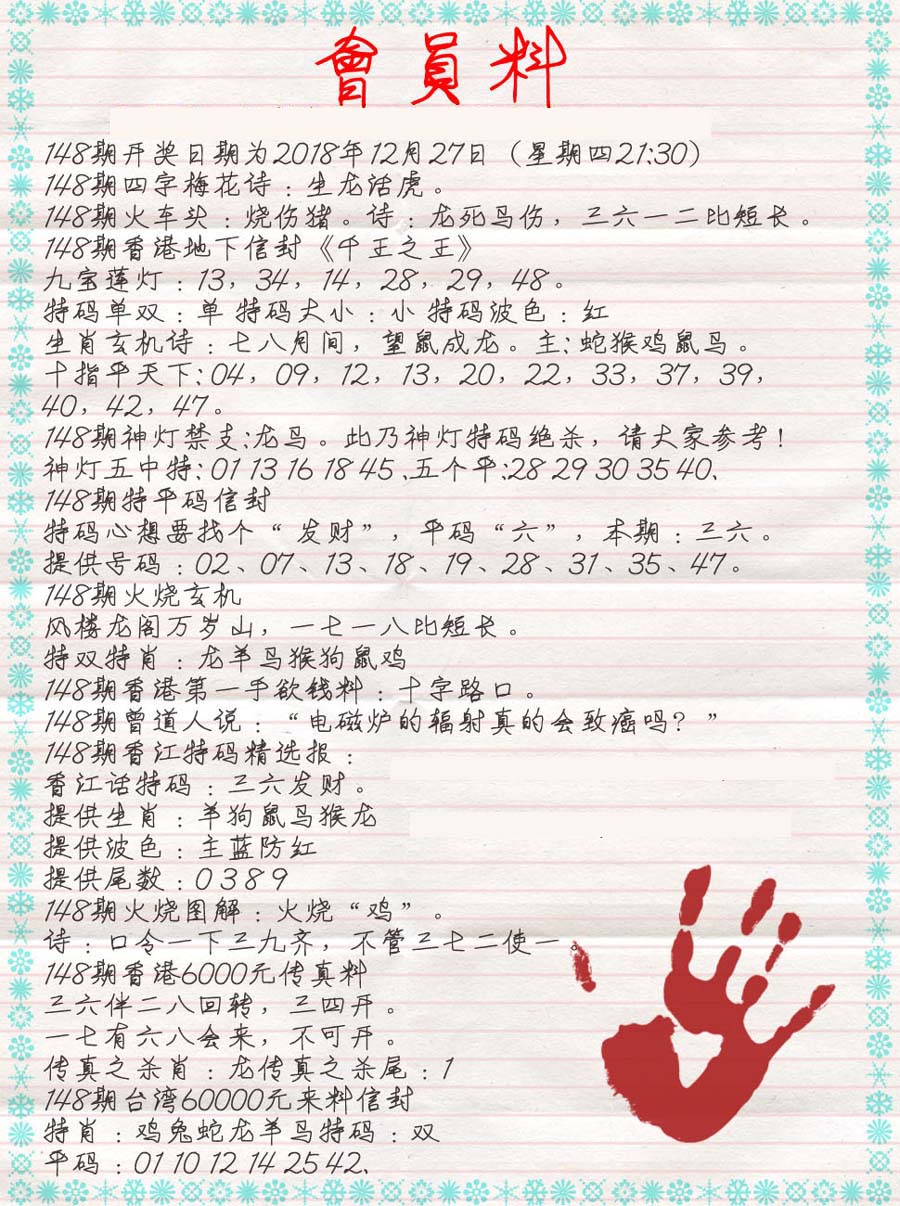 會員料
148期开奖日期为2018年12月27日（星期四21:30）
148期四字梅花诗：生龙活虎。
148期火车头：烧伤猪。诗：龙死马伤，三六一二比短长。
148期香港地下信封《千王之王》
九宝莲灯：13，34，14，28，29，48。
特码单双：单 特码大小：小 特码波色：红
生肖玄机诗：七八月间，望鼠成龙。主:蛇猴鸡鼠马。
十指平天下:04，09，12，13，20，22，33，37，39，
40，42，47。
148期神灯禁支:龙马。此乃神灯特码绝杀，请大家参考！
神灯五中特:01 13 16 18 45 、五个平:28 29 30 35 40、
148期特平码信封
特码心想要找个“发财”，平码“六”，本期：三六。
提供号码：02、07、13、18、19、28、31、35、47。
148期火烧玄机
风楼龙阁万岁山，一七一八比短长。
特双特肖：龙羊马猴狗鼠鸡
148期香港第一手欲钱料：十字路口。
148期曾道人说：“电磁炉的辐射真的会致癌吗？”
148期香江特码精选报：
香江话特码：三六发财。
提供生肖：羊狗鼠马猴龙
提供波色：主蓝防红
提供尾数：0 3 8 9
148期火烧图解：火烧“鸡”。
诗：口令一下三九齐，不管三七二使一。
148期香港6000元传真料
三六伴二八回转，三四开。
一七有六八会来，不可开。
传真之杀肖：龙传真之杀尾：1
148期台湾60000元来料信封
特肖：鸡兔蛇龙羊马特码：双
平码：01 10 12 14 25 42、